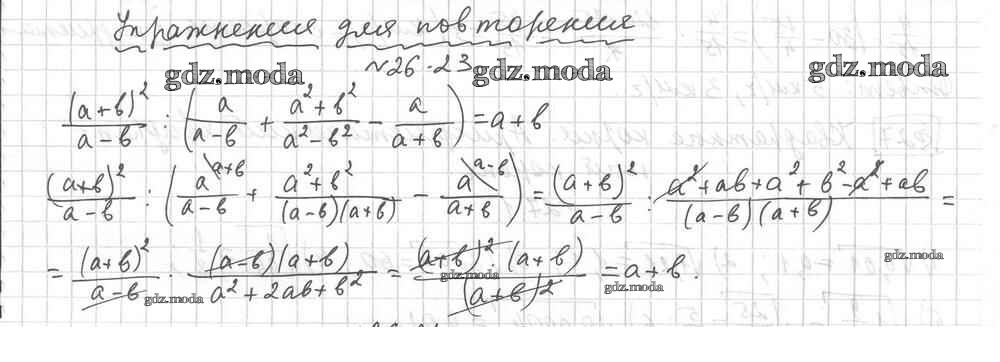 Упражнения для повторения
№26.23 gdz.moda gdz.moda gdz.moda
(a+b)²/(a-b) : (a/(a-b) + (a²+b²)/(a²-b²) - a/(a+b)) = a+b
(a+b)²/(a-b) : (a\a+b/(a-b) + (a²+b²)/((a-b)(a+b)) - a\a-b/(a+b)) = (a+b)²/(a-b) : (a²+ab+a²+b²-a²+ab)/((a-b)(a+b)) =
= (a+b)²/(a-b) · (a-b)(a+b)/(a²+2ab+b²) = (a+b)²·(a+b)/(a+b)² = a+b.
gdz.moda gdz.moda gdz.moda gdz.moda